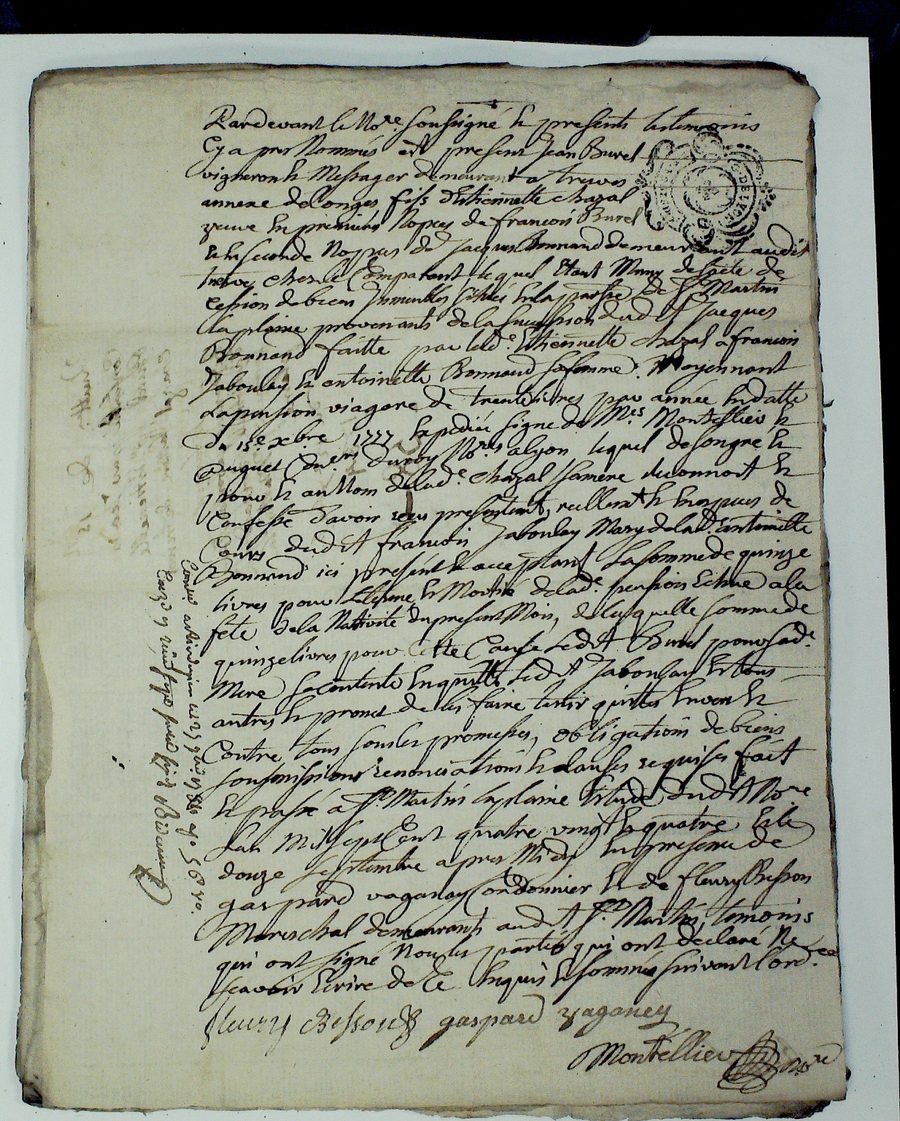 Pardevant le No.re soussigné & presents les temoins
Cy apres Nommés est present Jean Burel
vigneron & Messager demeurant a treves
annexe de Longes fils d'Etiennette chazal
veuve en premiéres Nopces de francois Burel
& en seconde Nopces de Jacques Bonnand demeurant audit
treves chez le Comparant lequel Etant Muny de
Cession de biens immeubles scitués En la paroisse de St Martin
la plaine provenants de la succession dudt Jacques
Bonnand faitte par lade. Etiennette chazal a francois
Jaboulay & antoinette Bonnand sa femme. Moyennant
la pension viagere de trente livres par année En datte
du 15e xbre 1777 Expediée signé de Mes Montellier &
duguet Con.ers du roy No.res a lyon lequel de son gré &
pour & au Nom de lade. chazal sa mere reconnoit &
Confesse d'avoir reçu presentement, reellement & En especes de
Cours dudt francois Jaboulay Mary de lad. antoinette
Bonnand ici present & acceptant La somme de quinze
livres pour le terme & Moitié de lade. pension Echue a la
fete de la Nativité du present Mois, de laquelle somme de
quinze livres pour Cette Cause ledt Burel pour sade.
Mere se contente En quitte ledt Jaboulay & tous
autres & promet de les faire tenir quittes Envers &
Contre tous sous les promesses, obligations de biens
soumissions renonciations & clauses requises fait
& passé a St Martin la plaine Etude dudt No.re
L'an Mil sept Cent quatre vingt & quatre & le
douze septembre apres Midy En presence de
gaspard vaganay Cordonnier & de fleury Besson
Mareschal demeurants audt St. Martin, temoins
qui ont signé Non les parties qui ont déclaré Ne
scavoir Ecrire de Ce Enquis & sommés suivant l'ord.ce
fleury Besson gaspard vaganey
Montellier No.re